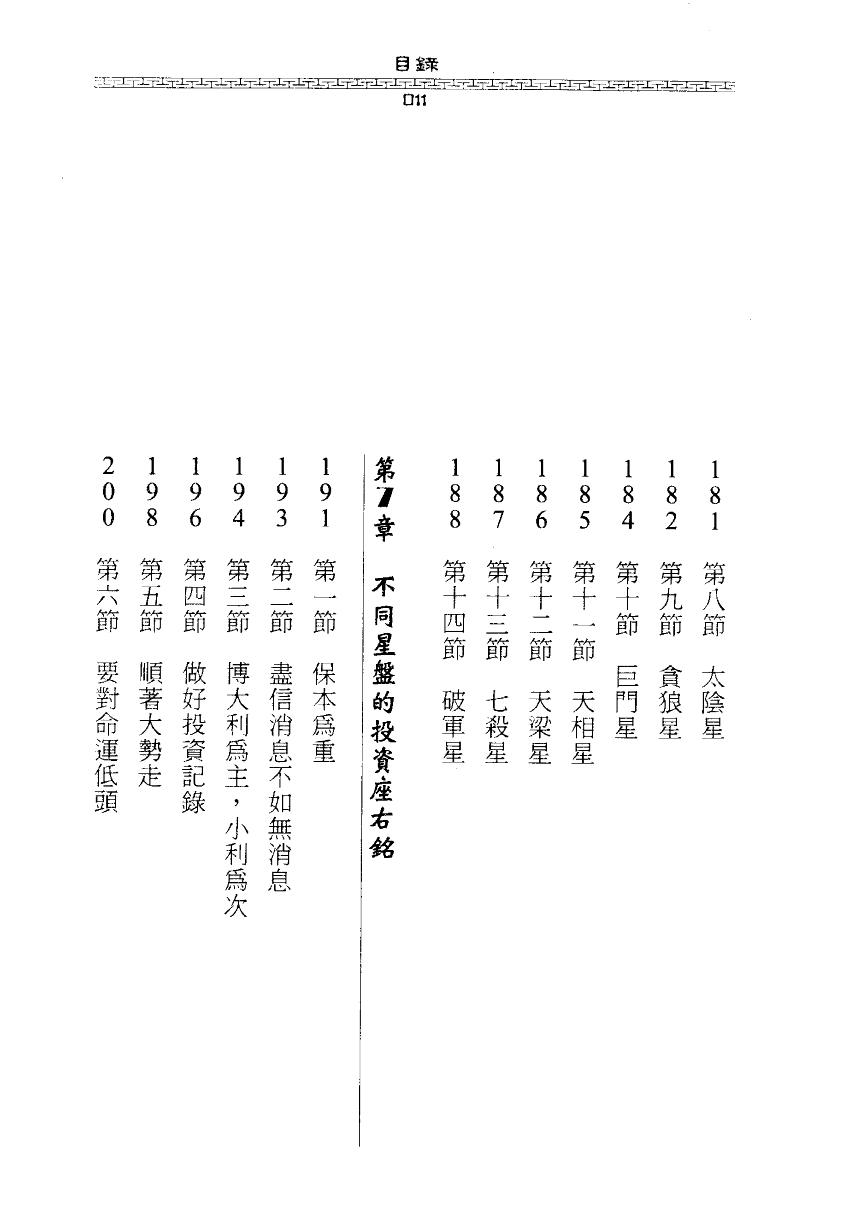 目錄
011
181 第八節 太陰星
182 第九節 貪狼星
184 第十節 巨門星
185 第十一節 天相星
186 第十二節 天梁星
187 第十三節 七殺星
188 第十四節 破軍星
第7章 不同星盤的投資座右銘
191 第一節 保本爲重
193 第二節 盡信消息不如無消息
194 第三節 博大利爲主，小利爲次
196 第四節 做好投資記錄
198 第五節 順著大勢走
200 第六節 要對命運低頭